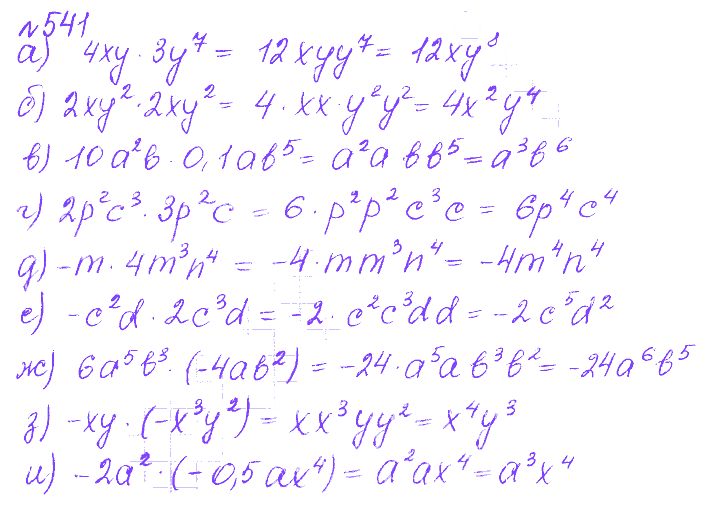 №541
а) 4xy · 3y⁷ = 12xyy⁷ = 12xy⁸
б) 2xy² · 2xy² = 4 · xx · y²y² = 4x²y⁴
в) 10a²b · 0,1ab⁵ = a²a bb⁵ = a³b⁶
г) 2p²c³ · 3p²c = 6 · p²p² c³c = 6p⁴c⁴
д) -m · 4m³n⁴ = -4 · mm³n⁴ = -4m⁴n⁴
е) -c²d · 2c³d = -2 · c²c³dd = -2c⁵d²
ж) 6a⁵b³ · (-4ab²) = -24 · a⁵a b³b² = -24a⁶b⁵
з) -xy · (-x³y²) = xx³yy² = x⁴y³
и) -2a² · (-0,5ax⁴) = a²ax⁴ = a³x⁴